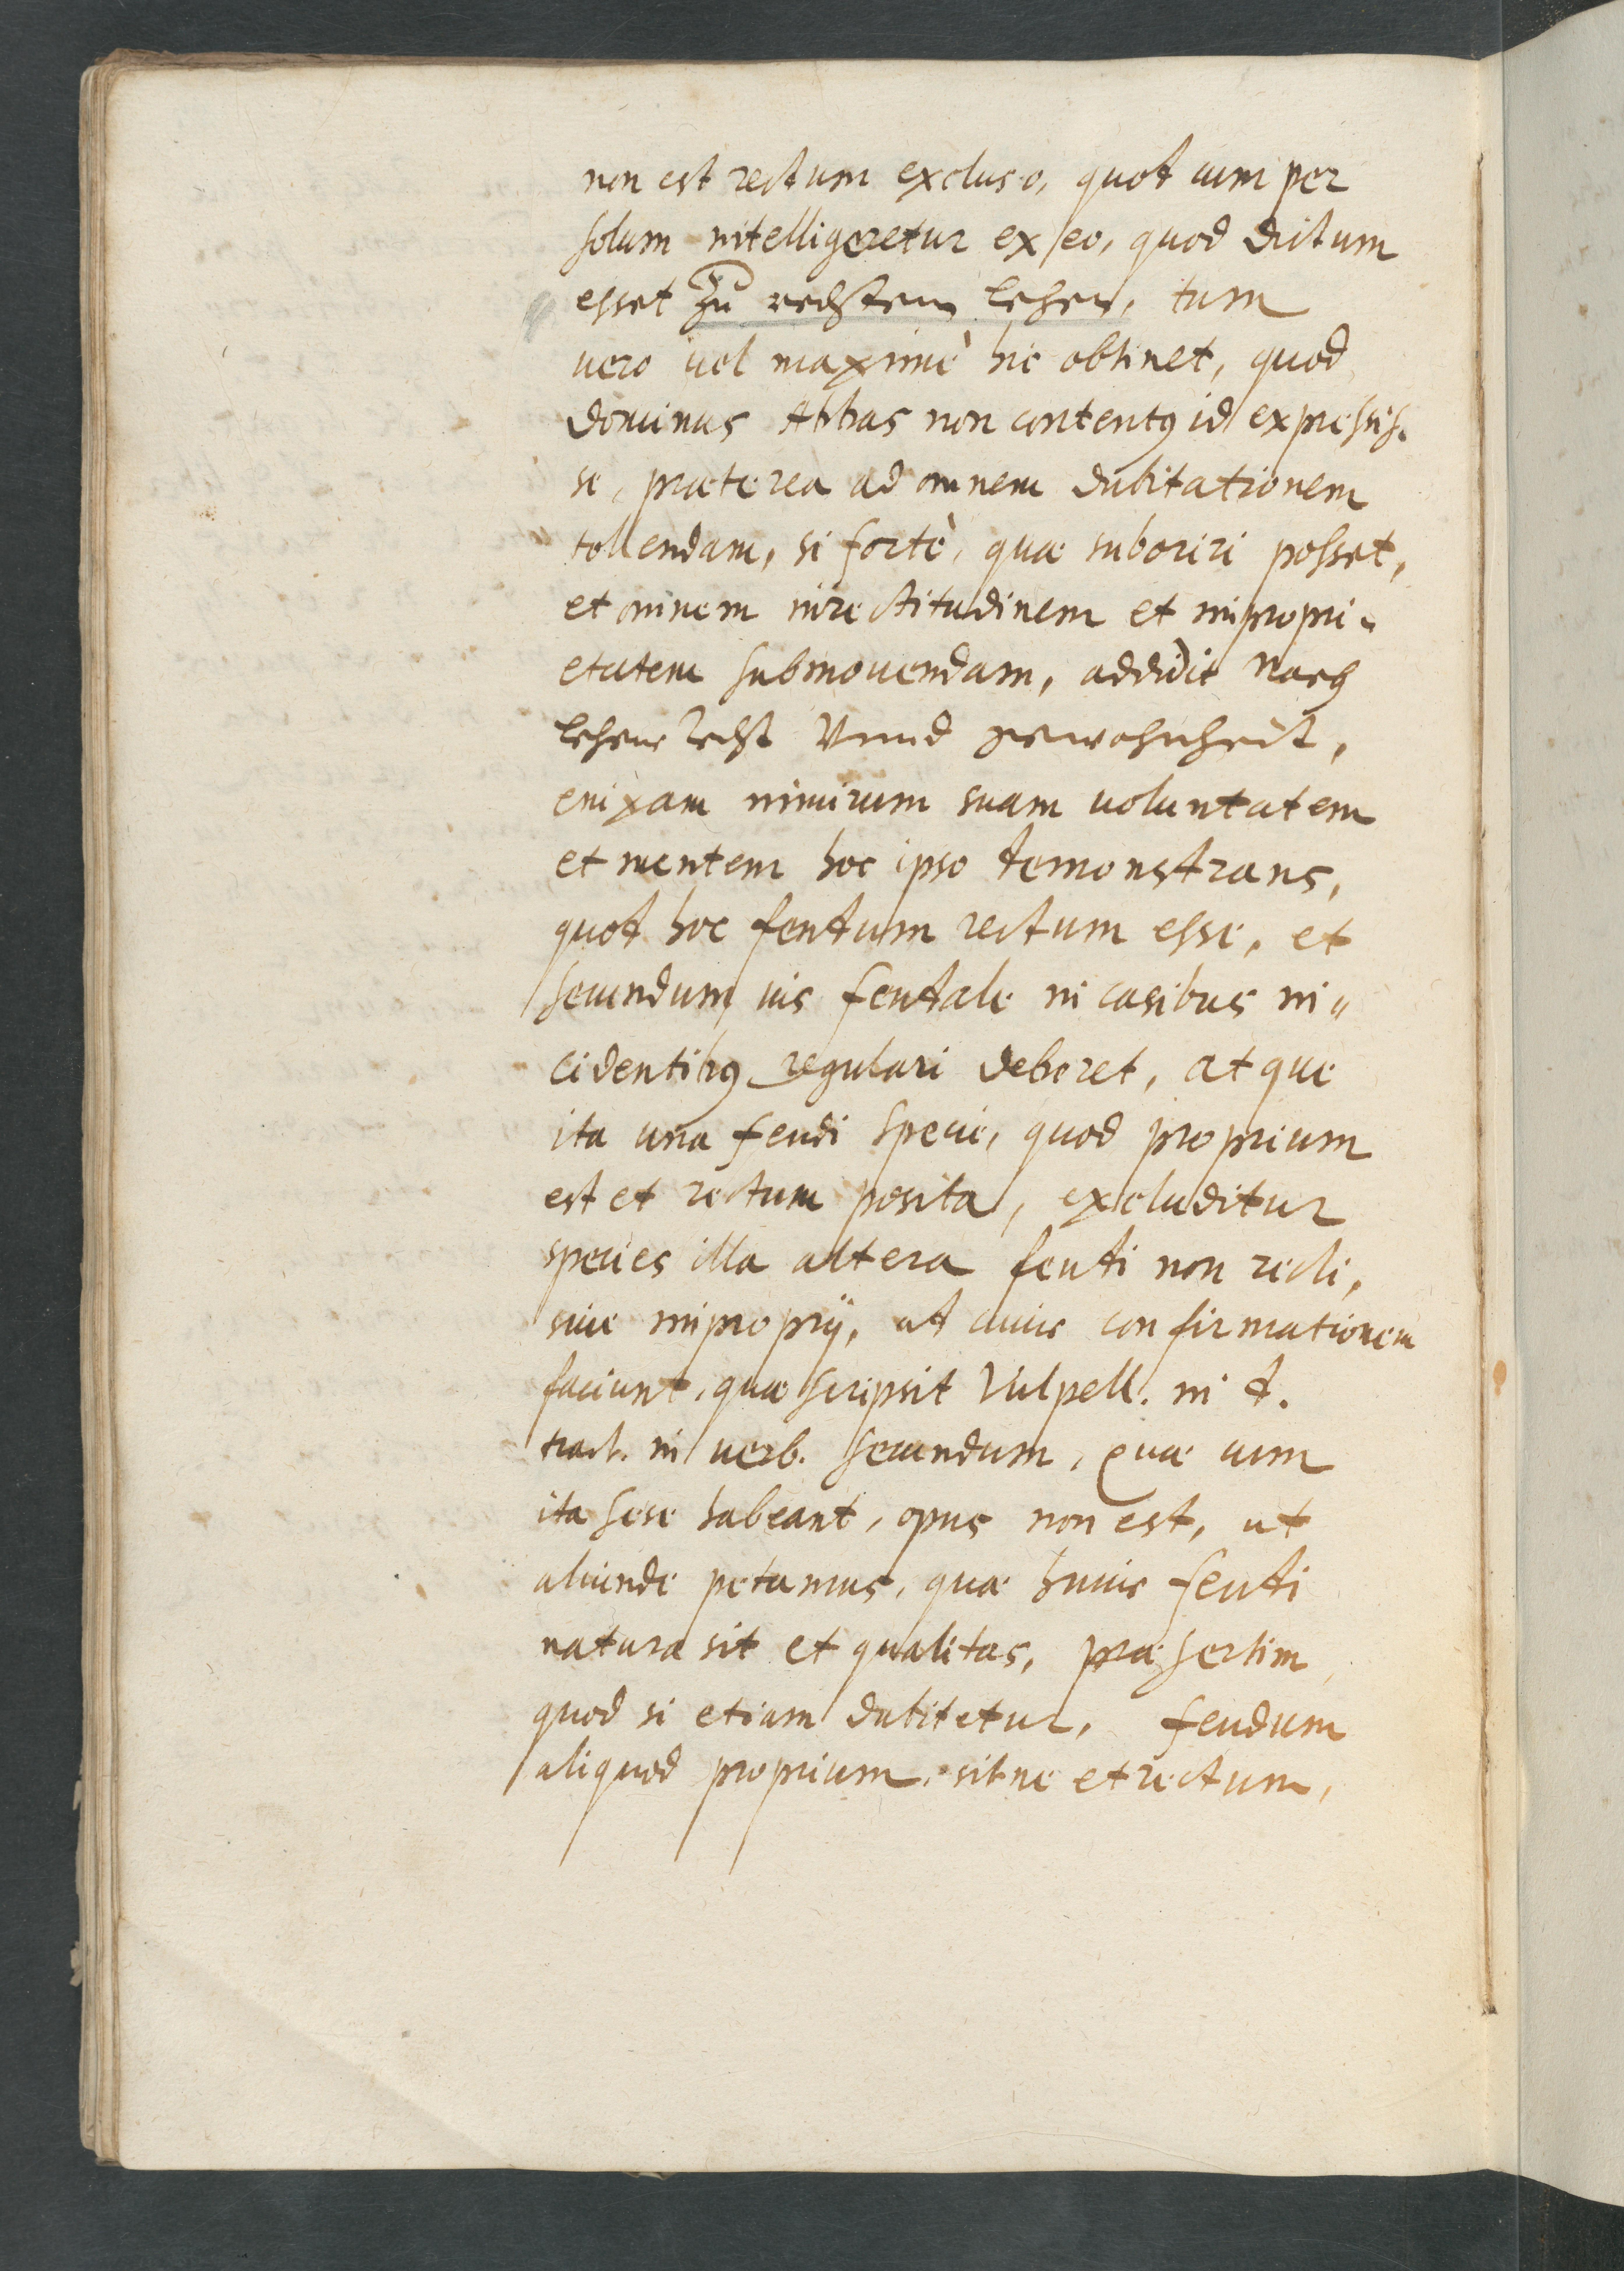 non est rectum excluso, quot cum per
solum intelligeretur ex eo, quod dictum
esset zu rechtem lehen, tum
vero vel maximè hic obtinet, quod
dominus Abbas non contentꝰ id expressis-
se, præterea ad omnem dubitationem
tollendam, si fortè, quæ suboriri posset,
et omnem inrectitudinem et impropri-
etatem submouendam, addidit Nach
lehens recht Vnnd gewohnheit,
enixam nimirum suam uoluntatem
et mentem hoc ipso temonstrans,
quot hoc feutum rectum esse, et
secundum ius feutale in casibus in-
cidentibꝰ regulari deberet, atque
ita una feudi specie, quod proprium
est et rectum posita, excluditur
species illa altera feuti non recti,
siue improprij, at cuius confirmationem
faciunt, quæ scripsit Vulpell. in t.
tract. in verb. secundum, Quæ cum
ita sese habeant, opus non est, ut
aliunde petamus, quæ huius feuti
natura sit et qualitas, præsertim
quod si etiam dubitetur, feudum
aliquod proprium sitne et rectum,